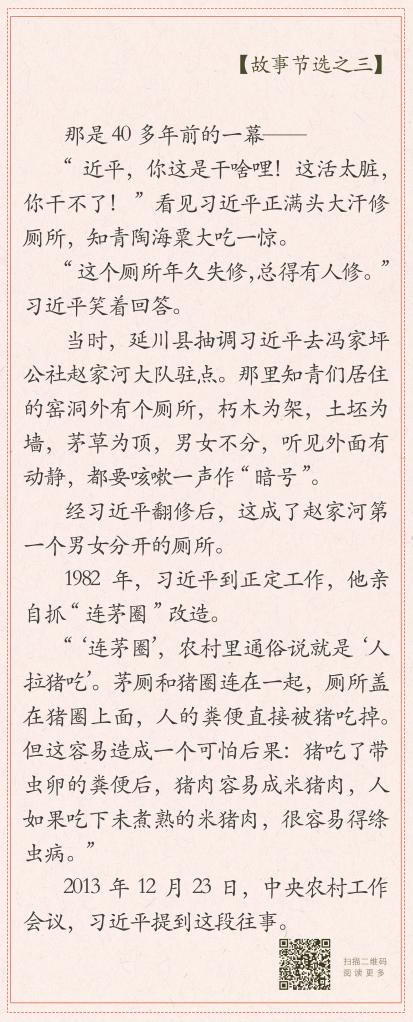 【故事节选之三】
那是40多年前的一幕——
“近平，你这是干啥哩！这活太脏，
你干不了！”看见习近平正满头大汗修
厕所，知青陶海粟大吃一惊。
“这个厕所年久失修,总得有人修。”
习近平笑着回答。
当时，延川县抽调习近平去冯家坪
公社赵家河大队驻点。那里知青们居住
的窑洞外有个厕所，朽木为架，土坯为
墙，茅草为顶，男女不分，听见外面有
动静，都要咳嗽一声作“暗号”。
经习近平翻修后，这成了赵家河第
一个男女分开的厕所。
1982 年，习近平到正定工作，他亲
自抓“连茅圈”改造。
“‘连茅圈’，农村里通俗说就是‘人
拉猪吃’。茅厕和猪圈连在一起，厕所盖
在猪圈上面，人的粪便直接被猪吃掉。
但这容易造成一个可怕后果：猪吃了带
虫卵的粪便后，猪肉容易成米猪肉，人
如果吃下未煮熟的米猪肉，很容易得绦
虫病。”
2013 年 12 月 23 日，中央农村工作
会议，习近平提到这段往事。
扫描二维码
阅读更多